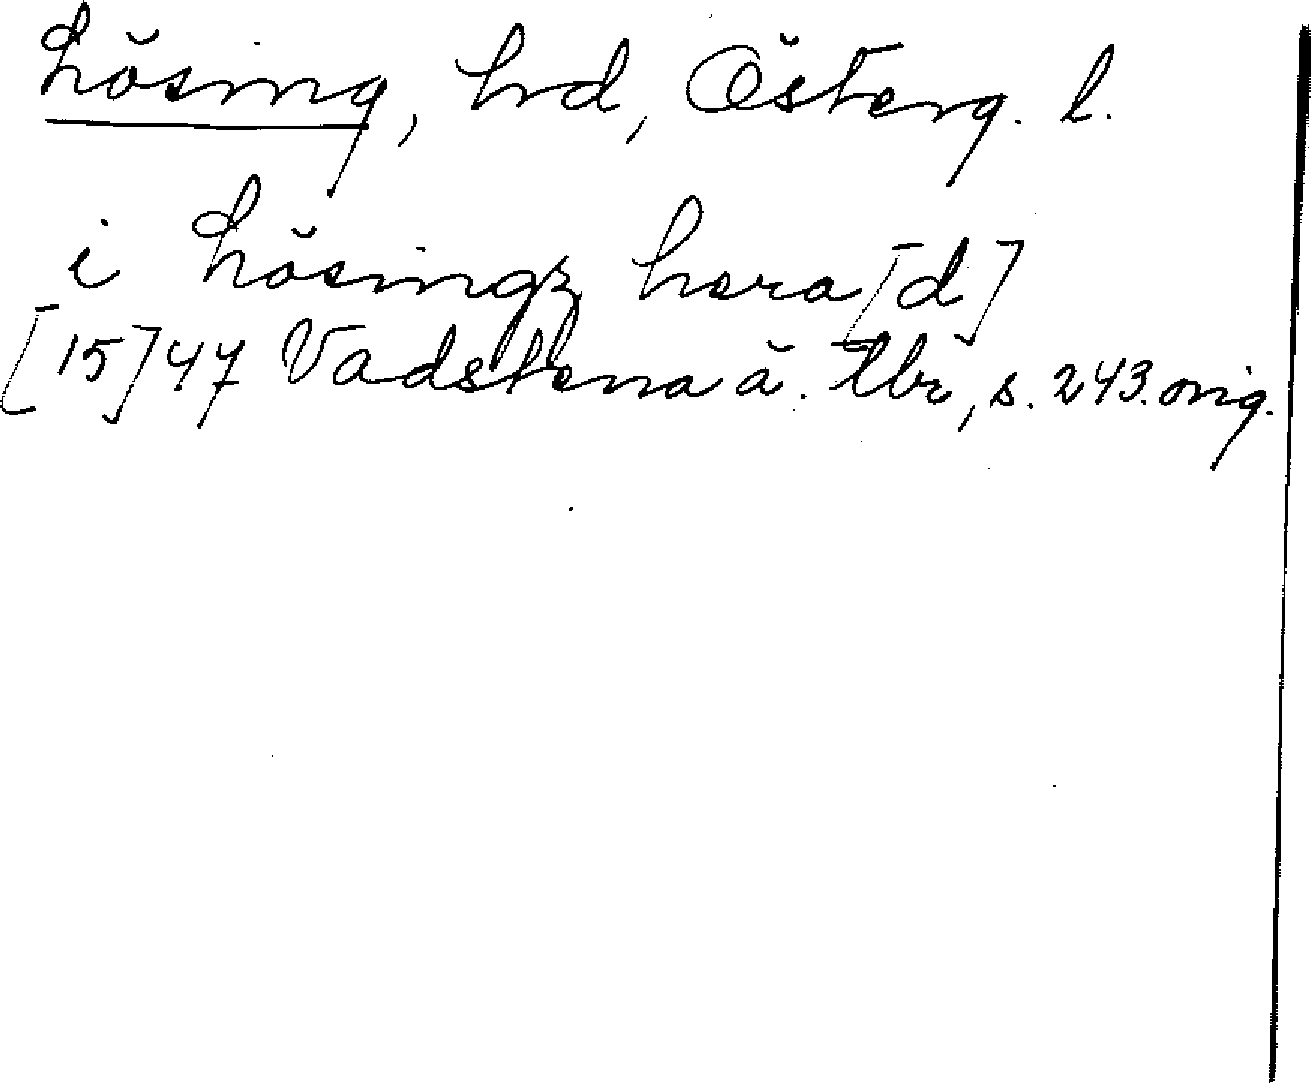 Lösing, hrd, Österg. l.
i Lösingz hera[d]
[15]47 Vadstena ä. tbr, s. 243. orig.